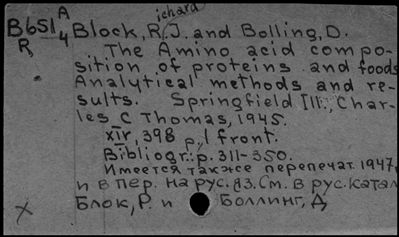 B651 A Block, Richard J. and Bolling, D.
R, 4 The Amino acid compo-
sition of proteins and foods
Analytical methods and re-
sults. Springfield Ill., Char-
les C Thomas, 1945.
XIV, 398 p., 1 front.
Bibliogr.: p. 311-350.
Имеется также перепечат. 1947,
и в пер. на рус. яз. См. в рус. катал
Блок, Р. и Боллинг, Д